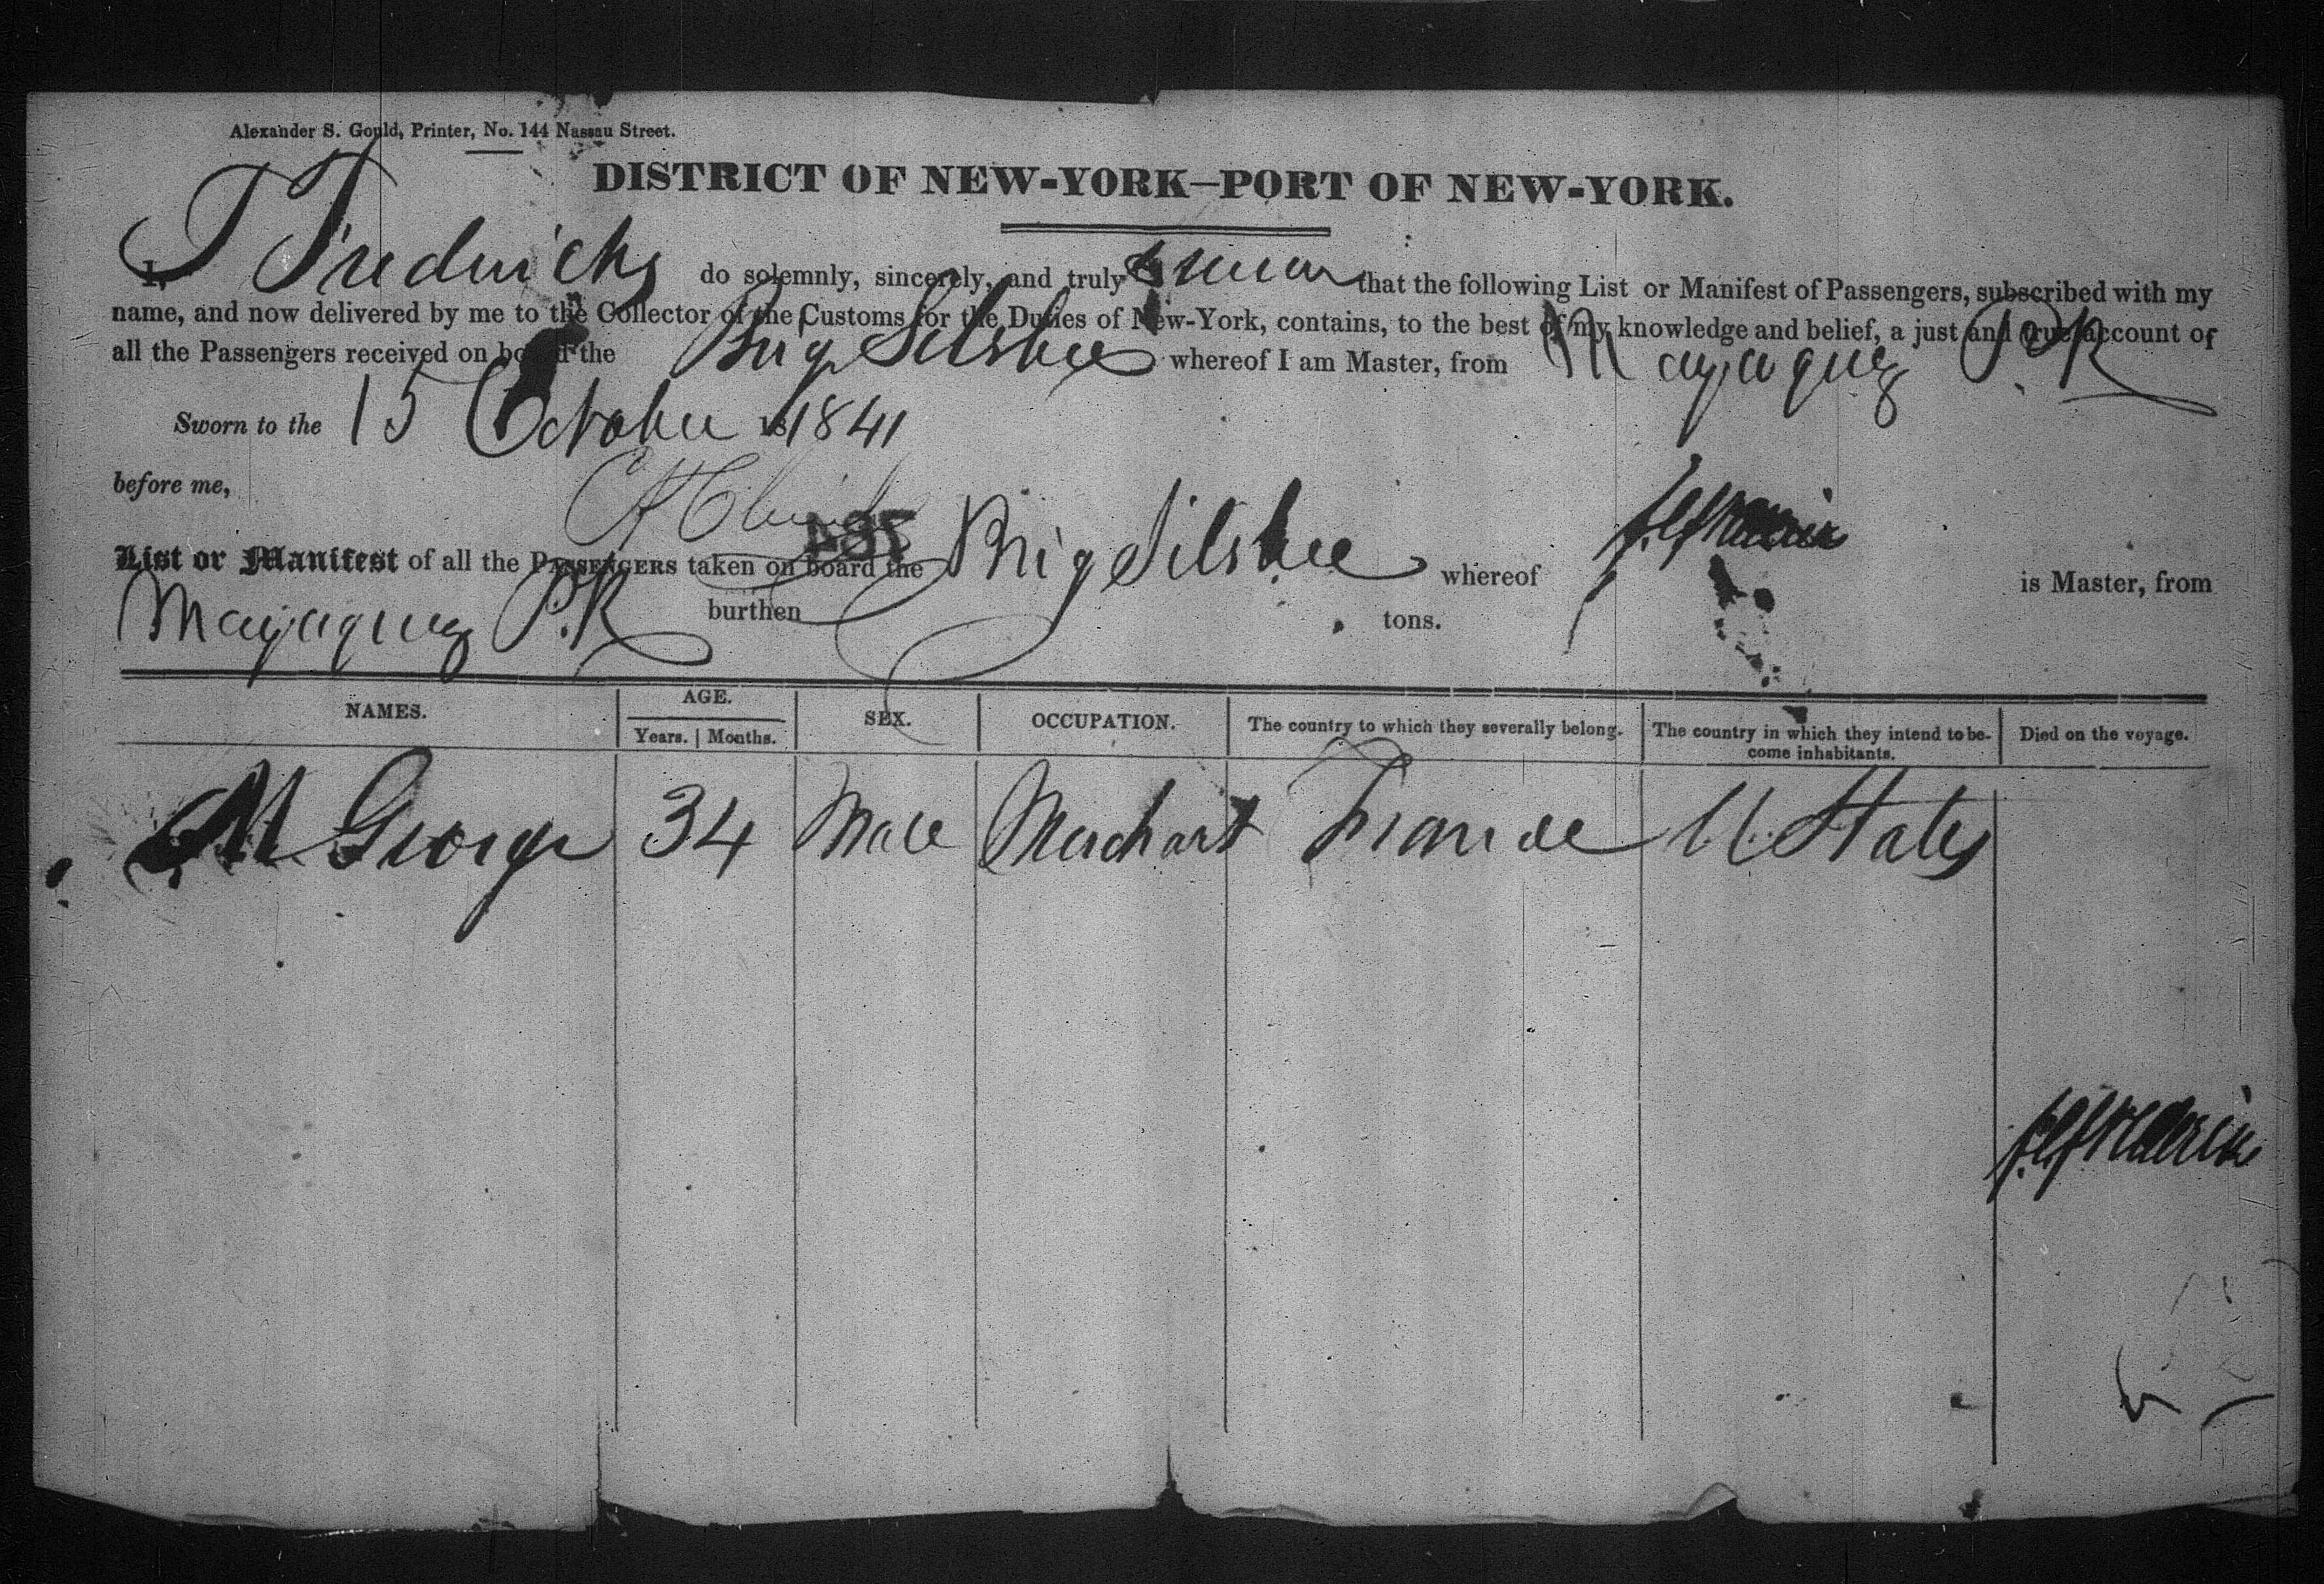 Alexander S. Gould, Printer, No. 144 Nassau Street.
DISTRICT OF NEW-YORK—PORT OF NEW-YORK.
I, Fredericks do solemnly, sincerely, and truly swear that the following List or Manifest of Passengers, subscribed with my
name, and now delivered by me to the Collector of the Customs for the Duties of New-York, contains, to the best of my knowledge and belief, a just and true account of
all the Passengers received on board the Brig Silsbee whereof I am Master, from Mayaguez P.R
Sworn to the 15 October 18 1841
before me,
List or Manifest of all the PASSENGERS taken on board the Brig Silsbee whereof is Master, from
Mayaguez P.R burthen tons.
NAMES. AGE. SEX. OCCUPATION. The country to which they severally belong. The country in which they intend to be- Died on the voyage.
Years. Months. come inhabitants.
M George 34 Male Merchant France U. States